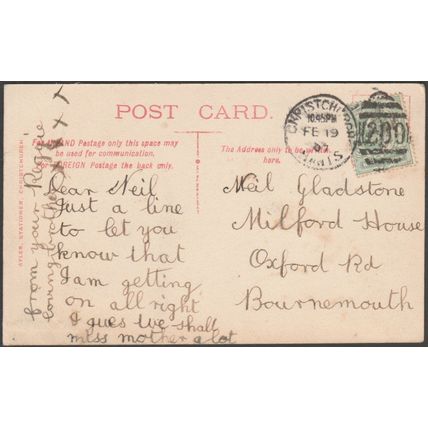 POST CARD.
For INLAND Postage only this space may
be used for communication.
For FOREIGN Postage the back only.
The Address only to be written
here.
Dear Neil
Just a line
to let you
know that
I am getting
on all right
I gues we shall
miss mother a lot
from your
loving brother Reggie
x x x x
Neil Gladstone
Milford House
Oxford Rd
Bournemouth
CHRISTCHURCH
10.45PM
FE 19
HANTS
200
STATIONER, CHRISTCHURCH